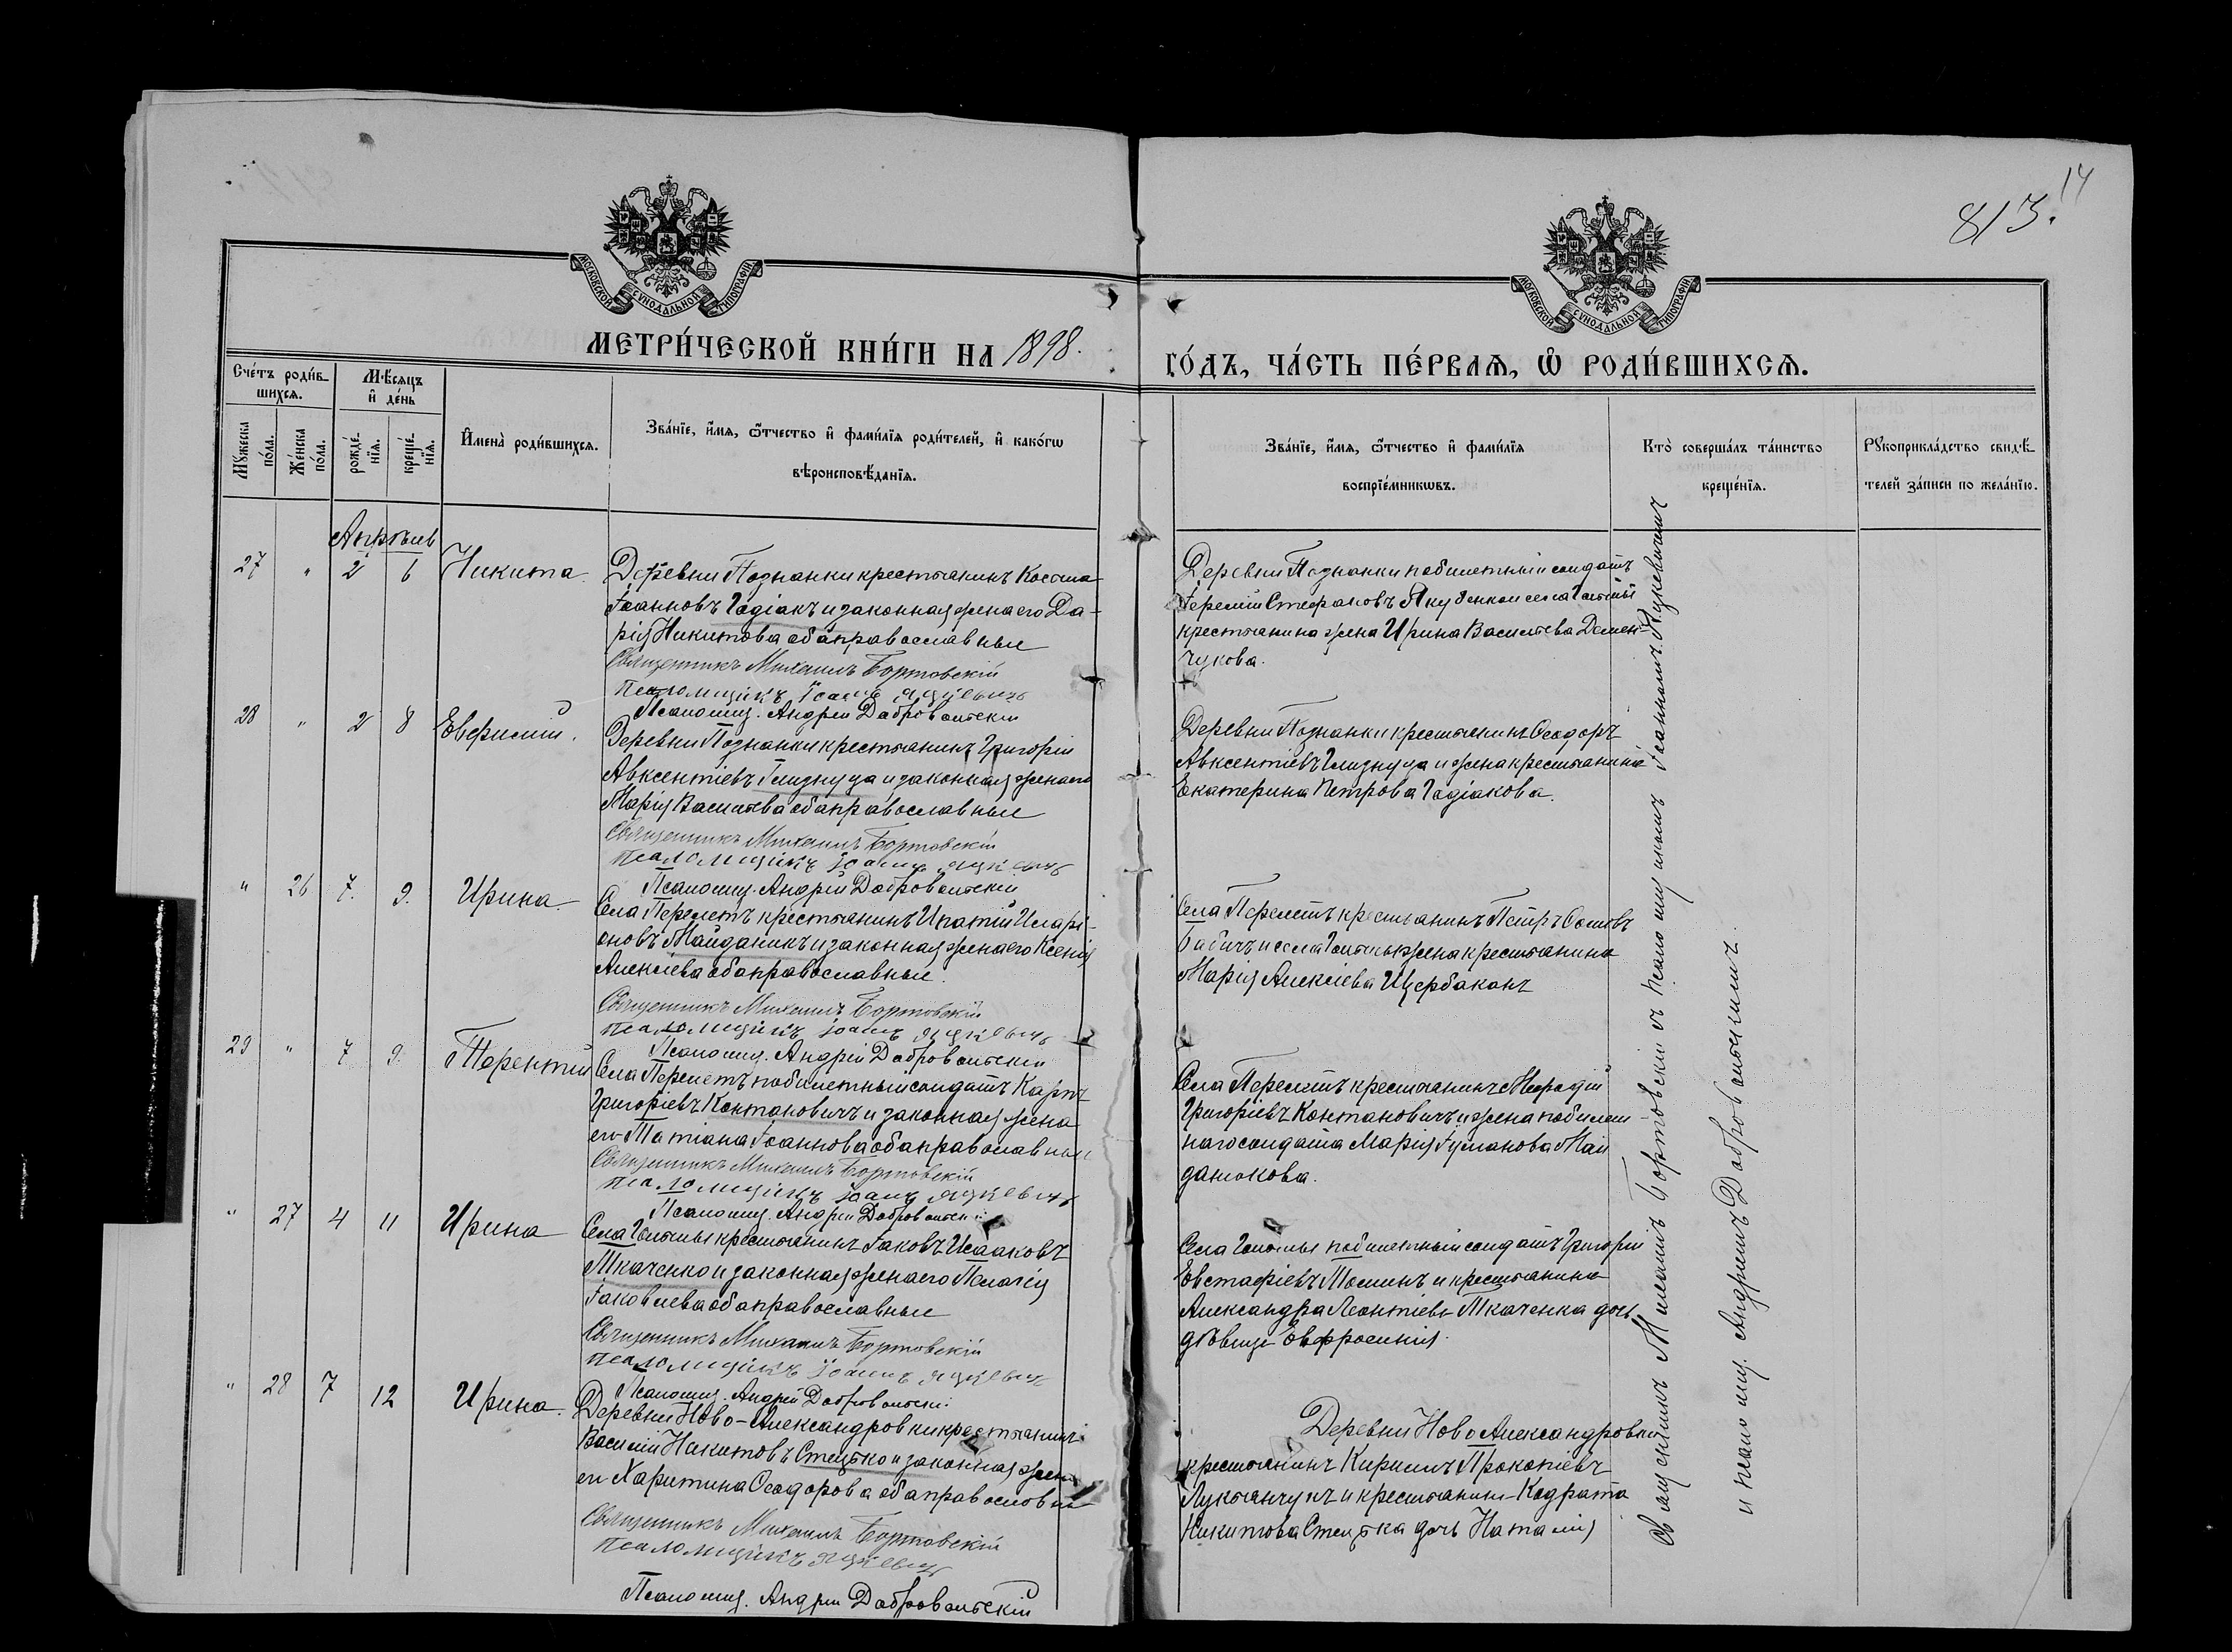 14
813.
МОСКОВСКОЙ СѴНОДАЛЬНОЙ ТИПОГРАФІИ
МОСКОВСКОЙ СѴНОДАЛЬНОЙ ТИПОГРАФІИ
МЕТРИ́ЧЕСКОЙ КНИ́ГИ НА 1898.
ГО́ДЪ, ЧА́СТЬ ПЕ́РВАѦ, Ѡ҆ РОДИ́ВШИХСѦ.
Сче́тъ роди́в-
шихсѧ.
Мѣ́сѧцъ
и҆ де́нь
Мꙋ́жеска
по́ла.
Же́нска
по́ла.
рожде́-
нїѧ.
креще́-
нїѧ.
И҆мена̀ роди́вшихсѧ.
Зва́нїе, и҆́мѧ, ѻ҆́тчество и҆ фами́лїѧ роди́телей, и҆ како́гѡ
вѣроисповѣ́данїѧ.
Зва́нїе, и҆́мѧ, ѻ҆́тчество и҆ фами́лїѧ
воспрїе́мникѡвъ.
Кто̀ соверша́лъ та́инство
креще́нїѧ.
Рꙋкоприкла́дство свидѣ́-
телей за́писи по жела́нїю.
Апрѣль
27 " 2 6 Никита.
Деревни Познанки крестьянинъ Косма
Іоанновъ Гадіакъ и законная жена его Да-
рія Никитова оба православные
Священникъ Михаилъ Бортовскій
Псаломщикъ Іоаннъ Яцкевичъ
Псаломщ. Андрей Добровольскій
Деревни Познанки побилетный солдатъ
Іеремій Стефановъ Якубенко и села Гольмы
крестьянина жена Ирина Васильева Демен-
чукова.
28 " 2 8 Евфимій.
Деревни Познанки крестьянинъ Григорій
Авксентіевъ Глизнуца и законная жена его
Марія Васильева оба православные
Священникъ Михаилъ Бортовскій
Псаломщикъ Іоаннъ Яцкевичъ
Псаломщ. Андрей Добровольскій
Деревни Познанки крестьянинъ Ѳеодоръ
Авксентіевъ Глизнуца и жена крестьянина
Екатерина Петрова Гадіакова.
" 26 7. 9. Ирина.
Села Перелетъ крестьянинъ Ипатій Иларі-
оновъ Майданикъ и законная жена его Ксенія
Алексіева оба православные.
Священникъ Михаилъ Бортовскій
Псаломщикъ Іоаннъ Яцкевичъ
Псаломщ. Андрей Добровольскій
Села Перелетъ крестьянинъ Петръ
Бабичъ и села Гольмы жена крестьянина
Марія Алексіева Щербаканъ
29 " 7 9. Терентій
Села Перелетъ побилетный солдатъ Карпъ
Григоріевъ Контановичъ и законная жена
его Татіана Іоаннова оба православные
Священникъ Михаилъ Бортовскій
Псаломщикъ Іоаннъ Яцкевичъ
Псаломщ. Андрей Добровольскій
Села Перелетъ крестьянинъ Меѳодій
Григоріевъ Контановичъ и жена побилет-
наго солдата Марія Май-
данюкова.
" 27 4 11 Ирина
Села Гольмы крестьянинъ Іаковъ Исааковъ
Ткаченко и законная жена его Пелагія
Іаковлева оба православные
Священникъ Михаилъ Бортовскій
Псаломщикъ Іоаннъ Яцкевичъ
Псаломщ. Андрей Добровольскій
Села Гольмы побилетный солдатъ Григорій
Евстафіевъ и крестьянина
Александра Леонтіева Ткаченка дочь
дѣвица Евфросинія.
" 28 7 12 Ирина.
Деревни Ново-Александровки крестьянинъ
Василій Никитовъ Стецько и законная жена
его Харитина Ѳеодорова оба православные
Священникъ Михаилъ Бортовскій
Псаломщикъ Яцкевичъ
Псаломщ. Андрей Добровольскій
Деревни Ново Александровки
крестьянинъ Кириллъ Прокопіевъ
Лукьянчукъ и крестьянина Кодрата
Никитова Стецька дочь Наталія
Священникъ Михаилъ Бортовскій съ псаломщикомъ Іоанномъ Яцкевичемъ
и псаломщ. Андреемъ Добровольскимъ.